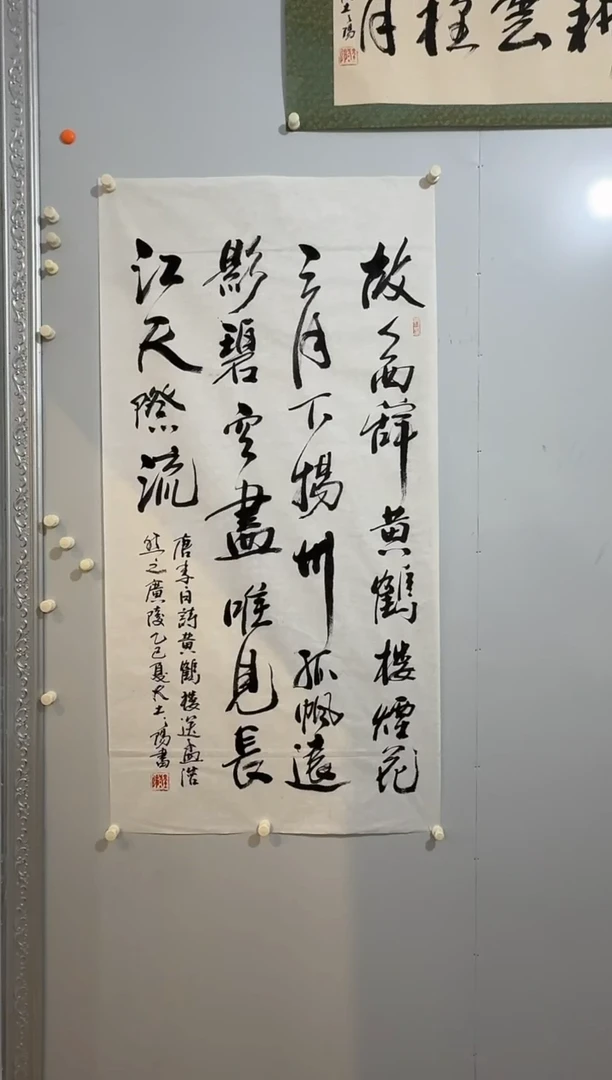 耕雲種月
故人西辭黄鶴楼煙花
三月下揚州孤帆遠
影碧空盡唯見長
江天際流
唐李白詩黄鶴楼送孟浩
然之廣陵乙巳夏書